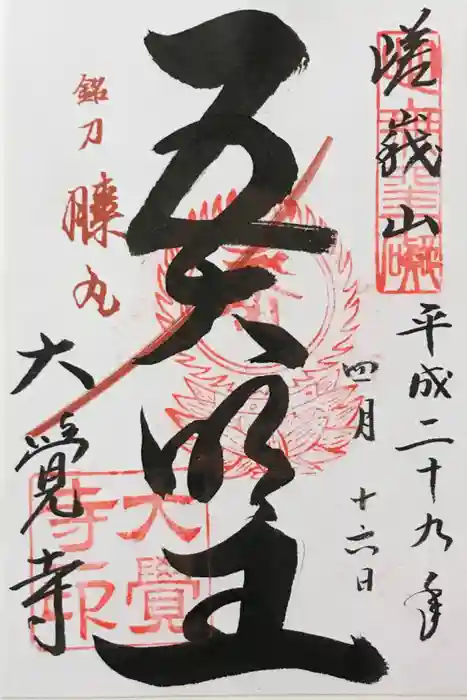 嵯峩山
平成二十九年
四月
十六日
五大明王
銘刀
膝丸
大覺寺
大覺
寺印